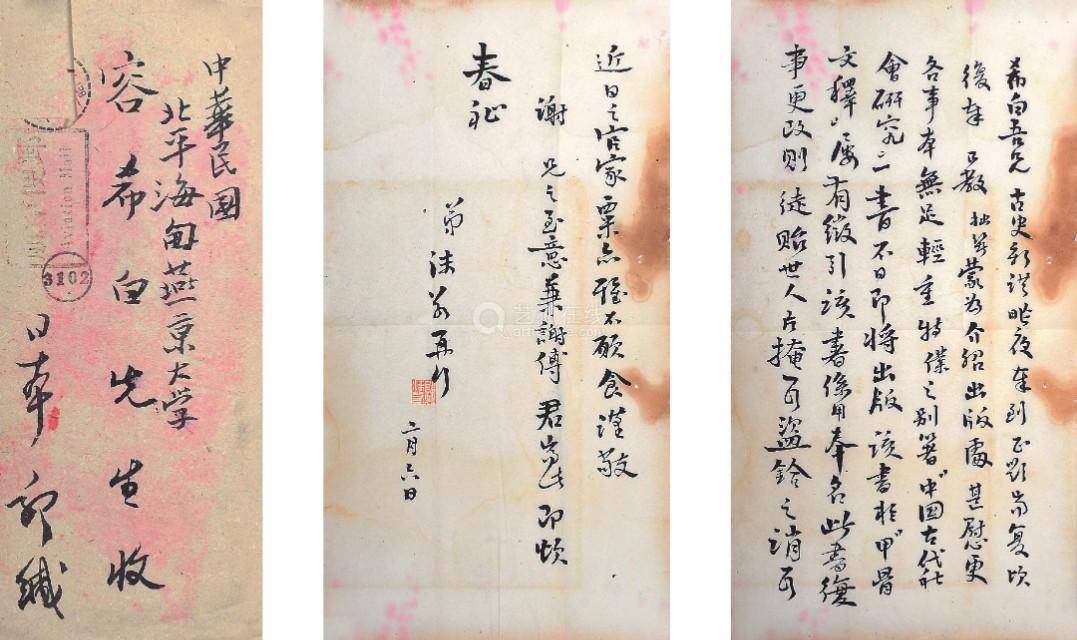 希白吾兄 古史新証昨夜奉到 正欲崮复 頃
復奉 教 拙著蒙為介紹出版處 甚慰 更
各事本無足輕重 特僕之別署“中国古代社
會研究”一書不日即將出版 該書於“甲骨
文釋”屢有徵引 該書係用本名 此書復
事更改則徒貽世人以掩耳盜鈴之誚耳
近日之官家粟亦雅不願食 謹敬
謝 兄之至意 兼謝傅君 耑此 即頌
春祉
弟 沫若再行
二月六日
中華民國
北平海甸燕京大学
容希白先生收
日本 郭緘
Aviation Mail
3102